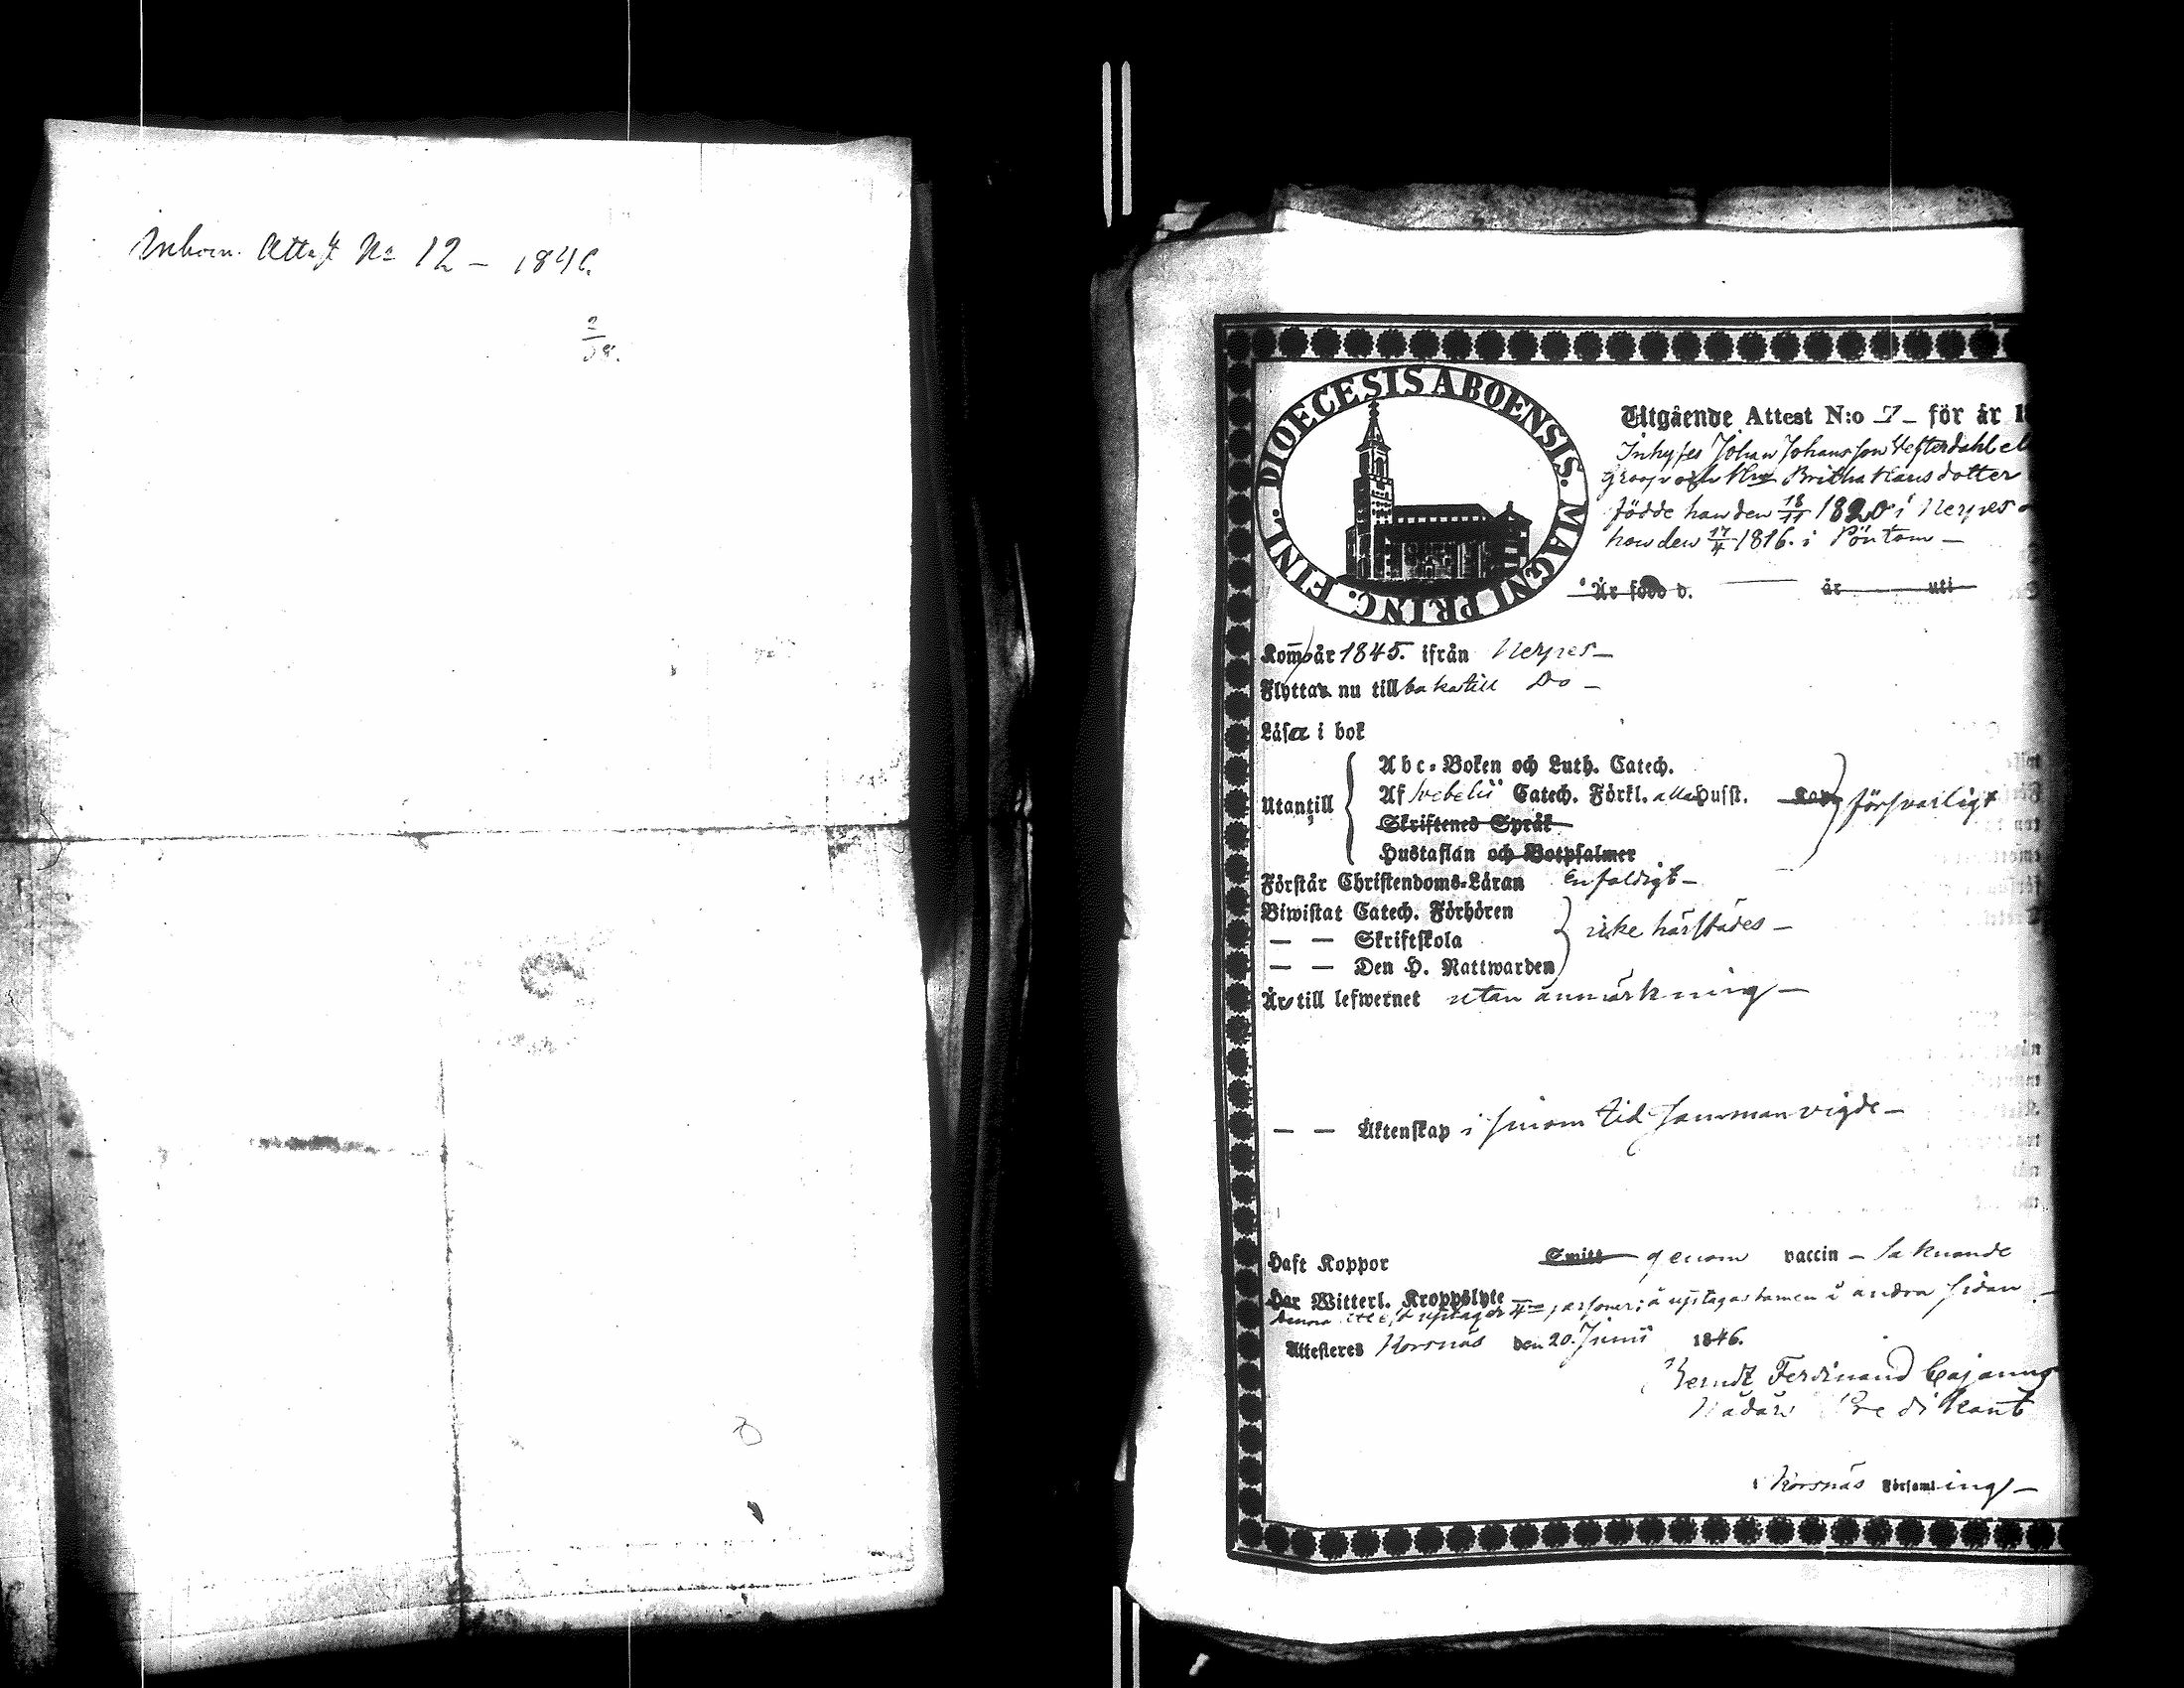 Inkom. Attest No 12 – 1846.
DIOECESIS ABOENSIS. MAGNI PRINC. FINL.
Utgående Attest N:o 7 – för år 1
Inhyses Johan Johansson Westerdahl
och Hu Britha Hansdotter
födde han den 18/11 1820 i Nerpes
hon den 17/4 1816. i Pörtom –
Är född d. år uti
Kom år 1845. ifrån Nerpes –
Flytta nu till baka till Do –
Läsa i bok
Abc-Boken och Luth. Catech.
Utantill
Af Svebelii Catech. Förkl. alla Husst. försvarligt
Skriftenes Språk
Hustaflan och Botpsalmer
Förstår Christendoms-Läran Enfaldigt –
Biwistat Catech. Förhören
— — Skriftskola icke härstädes –
— — Den H. Nattwarden
Äro till lefwernet utan anmärkning –
— — Äktenskap i sinom tid samman vigde –
Haft Koppor Smitt genom vaccin –
Har Witterl. Kroppslyte
å andra sidan
Attesteres Korsnäs den 20. Junii 1846.
Berndt Ferdinand Cajanus
Predikant
i Korsnäs Församl ing –